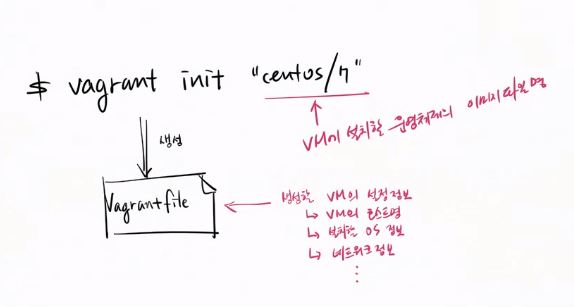 $ vagrant init "centos/7"
VM에 설치할 운영체제의 이미지파일명
생성
Vagrantfile
생성할 VM의 설정정보
↳ VM의 호스트명
↳ 설치할 OS 정보
↳ 네트워크정보
⋮